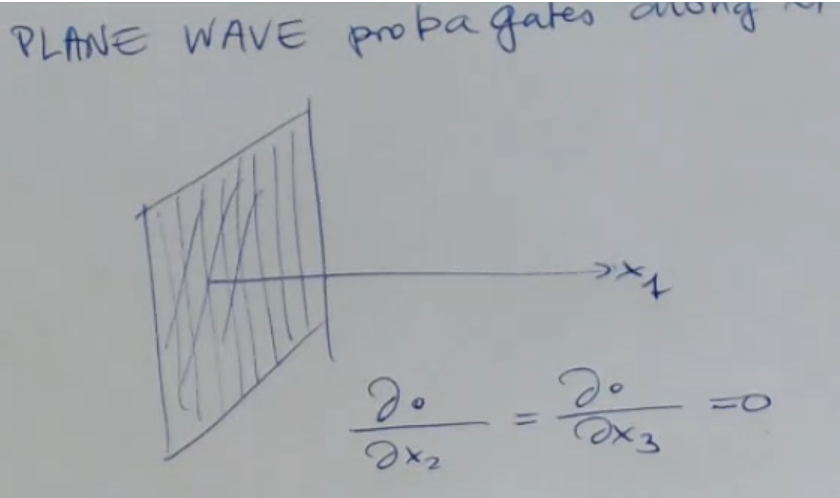 PLANE WAVE propagates along
x₁
∂∘/∂x₂ = ∂∘/∂x₃ = 0